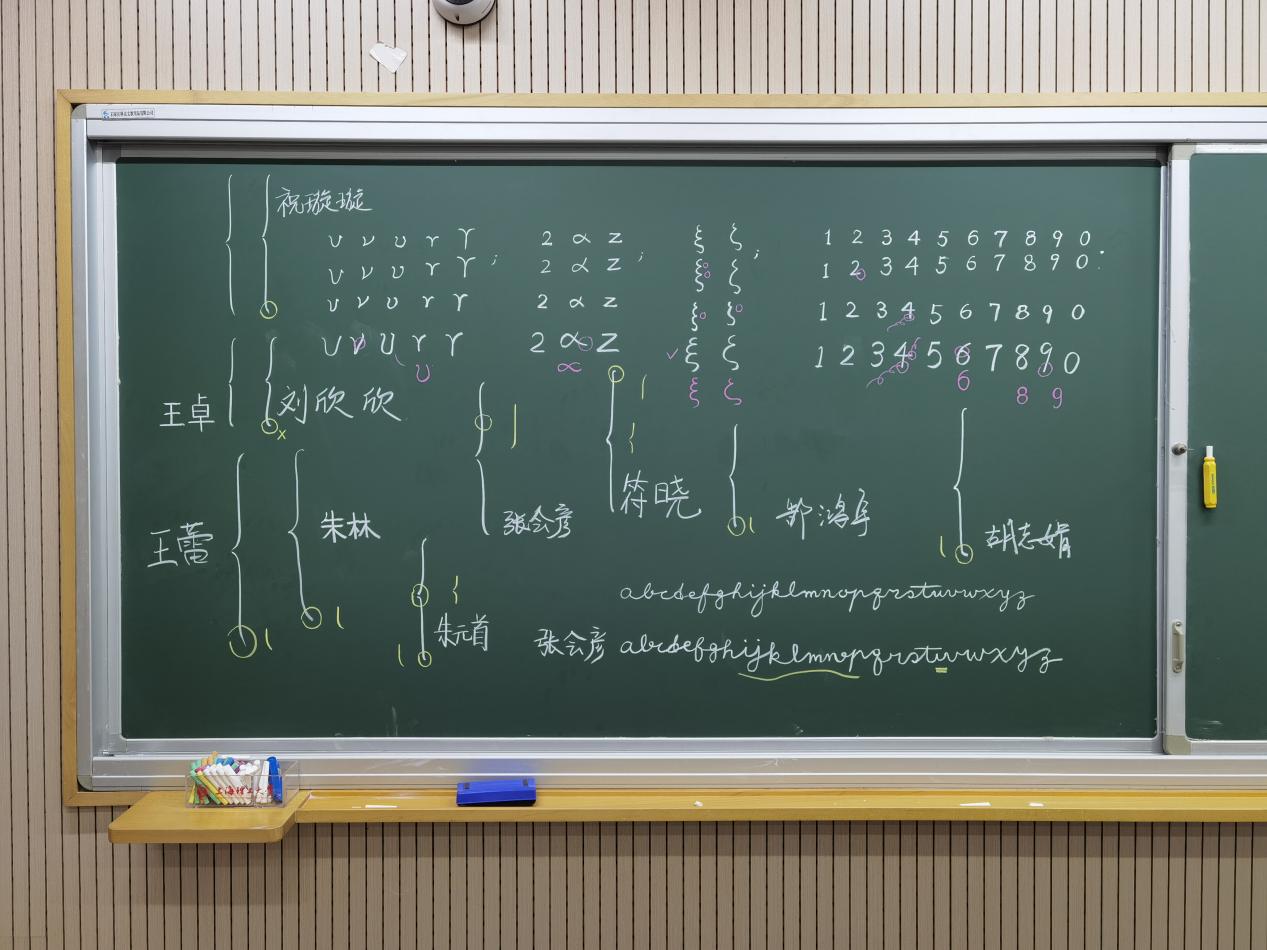 祝璇璇
υ ν υ r γ ; 2 α z ; ξ ζ ; 1 2 3 4 5 6 7 8 9 0 .
υ ν υ r γ 2 α z ξ ζ 1 2 3 4 5 6 7 8 9 0 .
υ ν υ r γ 2 α z ξ ζ 1 2 3 4 5 6 7 8 9 0
υ ν υ r γ 2 α z ξ ζ 1 2 3 4 5 6 7 8 9 0
υ α ξ ζ 6 8 9
王卓 刘欣欣
王蕾 朱林 张会彦 符晓 郭鸿阜 胡志娟
朱元首
abcdefghijklmnopqrstuvwxyz
张会彦 abcdefghijklmnopqrstuvwxyz